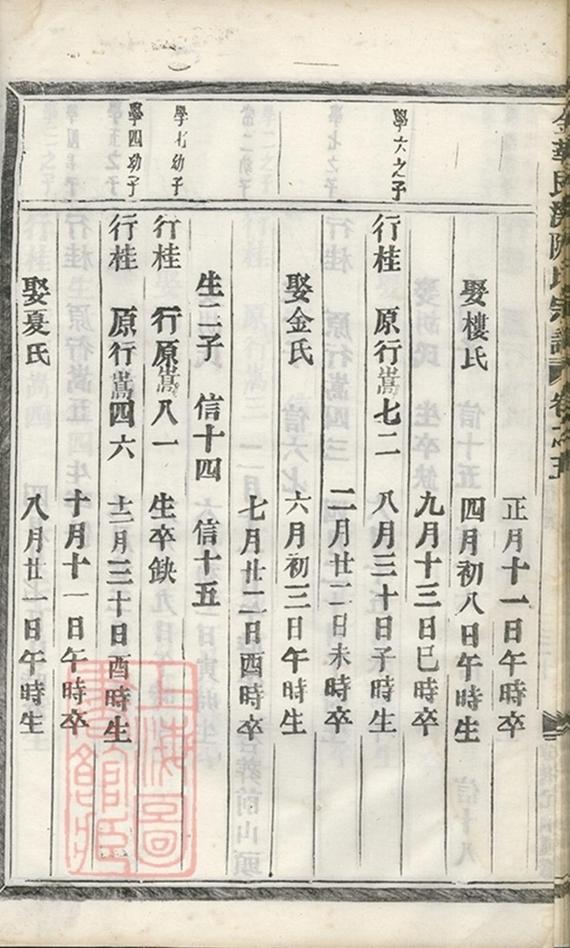 金華
氏宗譜 卷之五
正月十一日午時卒
娶樓氏 四月初八日午時生
九月十三日巳時卒
學六之子 行桂 原行嵩七二 八月三十日子時生
二月廿二日未時卒
娶金氏 六月初三日午時生
七月廿二日酉時卒
生二子 信十四 信十五
學七幼子 行桂 行原嵩八一 生卒缺
學四幼子 行桂 原行嵩四六 十二月三十日酉時生
十月十一日午時卒
娶夏氏 八月廿一日午時生
上海圖書館藏